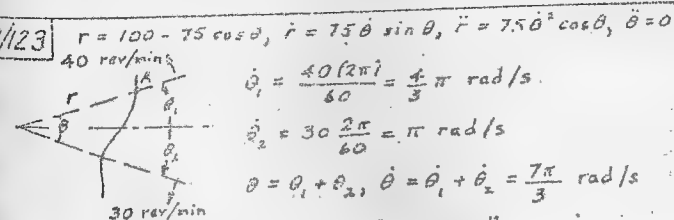 /123 r = 100 - 75 cos θ, ṙ = 75 θ̇ sin θ, r̈ = 75 θ̇² cos θ, θ̈ = 0
40 rev/min
A
r
θ
θ₁
θ₂
θ̇₁ = 40(2π)/60 = 4/3 π rad/s
θ̇₂ = 30 2π/60 = π rad/s
θ = θ₁ + θ₂, θ̇ = θ̇₁ + θ̇₂ = 7π/3 rad/s
30 rev/min